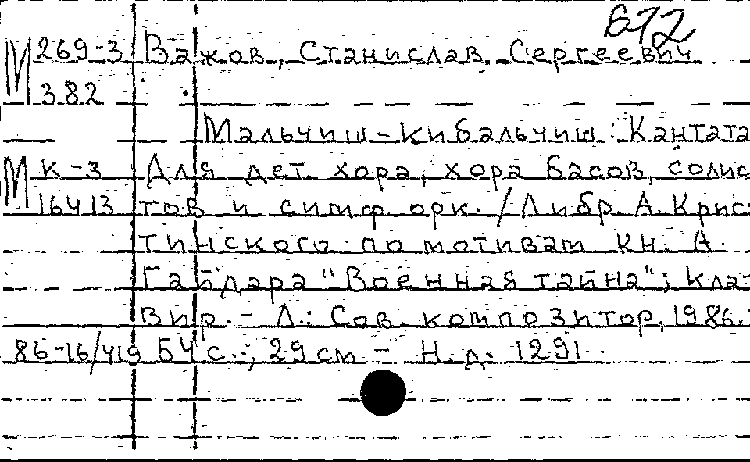 672
М 269-3 Важов, Станислав Сергеевич
382
Мальчиш-Кибальчиш: Кантата
М К-3 Для дет. хора, хора басов, солис-
16413 тов и симф. орк. / Либр. А. Крис-
тинского по мотивам кн. А.
Гайдара "Военная тайна"; Кла-
вир. - Л.: Сов. композитор, 1986. -
86-16/419 54 с.; 29 см - Н.д. 1291